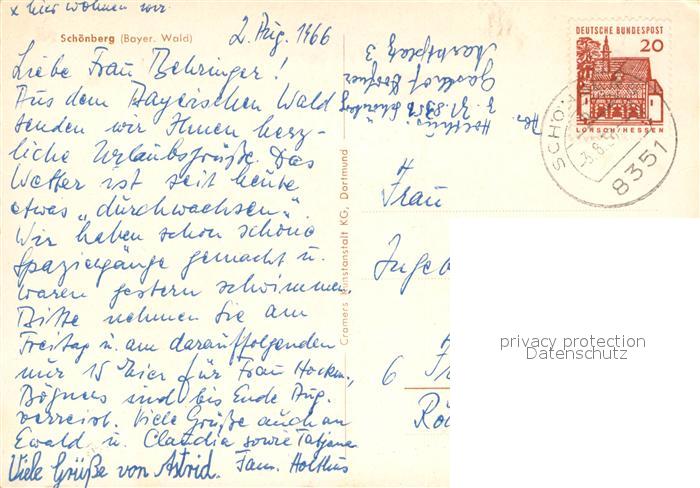 x hier wohnen wir.
Schönberg (Bayer. Wald)
2. Aug. 1966
Liebe Frau Behringer!
Aus dem Bayerischen Wald
senden wir Ihnen herz-
liche Urlaubsgrüße. Das
Wetter ist seit heute
etwas „durchwachsen".
Wir haben schon schöne
Spaziergänge gemacht u.
waren gestern schwimmen.
Bitte nehmen Sie am
Freitag u. am darauffolgenden
nur 15 Eier für Frau
sind bis Ende Aug.
verreist. Viele Grüße auch an
Ewald u. Claudia sowie Tatjana
Viele Grüße von Astrid. Fam. Holthus
Cramers Kunstanstalt KG, Dortmund
Abs.
Holthus
Schönberg
Gasthof
Marktplatz 3
DEUTSCHE BUNDESPOST
20
LORSCH/HESSEN
SCHÖN
8351
Frau
Ingeb
6
privacy protection
Datenschutz